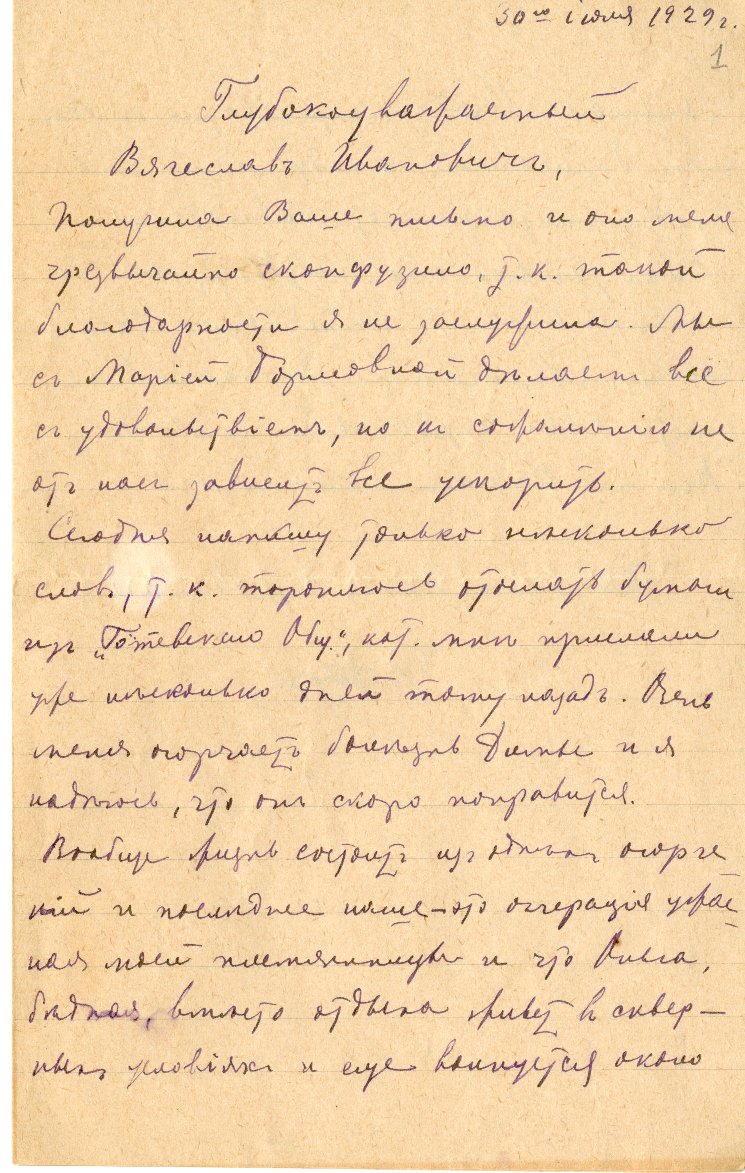 30го iюля 1929 г.
1
Глубокоуважаемый
Вячеславъ Ивановичъ,
Получила Ваше письмо и оно меня
чрезвычайно сконфузило, т.к. такой
благодарности я не заслужила. Мы
съ Маріей дѣлаемъ все
съ удовольствіемъ, но къ сожалѣнію не
отъ насъ зависитъ все ускорить.
Сегодня напишу только нѣсколько
словъ, т.к. тороплюсь отослать бумаги
изъ „Гётевскаго Общ.", кот. мнѣ прислали
уже нѣсколько дней тому назадъ. Очень
меня огорчаетъ болѣзнь Димы и я
надѣюсь, что онъ скоро поправится.
Вообще жизнь состоитъ изъ однѣхъ огорче
ній и послѣднее наше – это операція ужас
ная моей племянницы и что Ольга,
бѣдная, вмѣсто отдыха живетъ въ сквер–
ныхъ условіяхъ и еще волнуется около